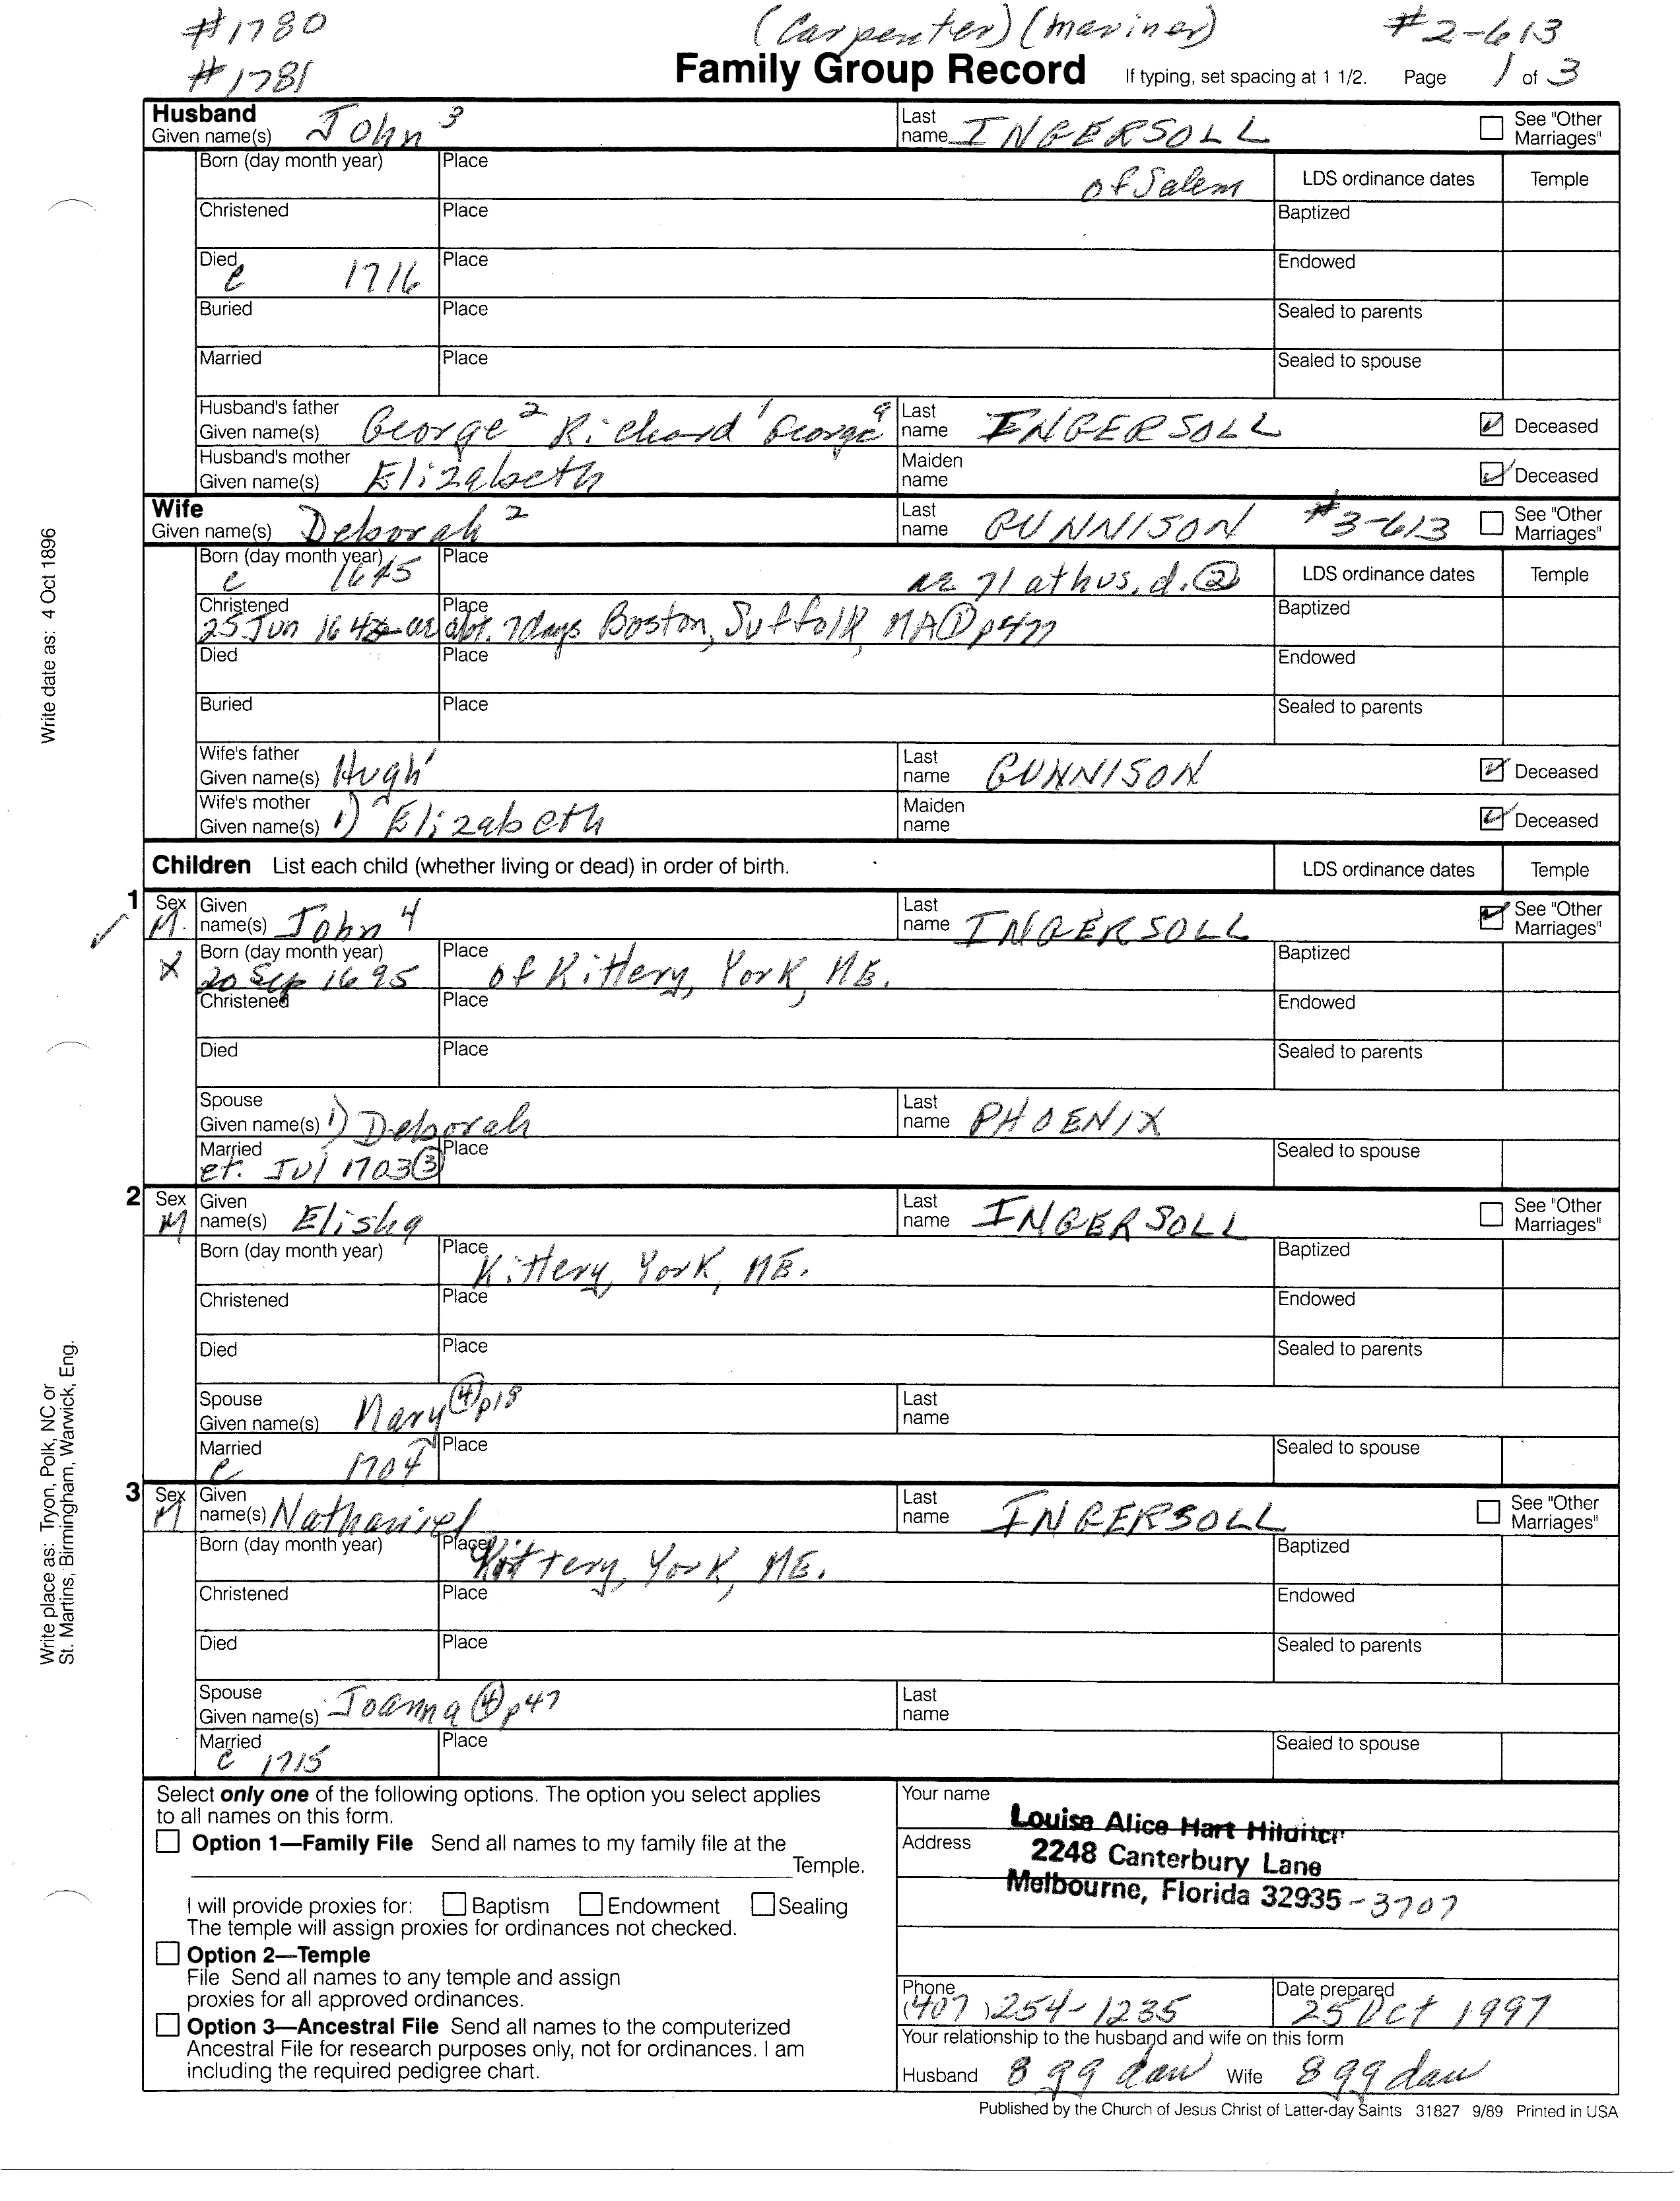 #1780 (Carpenter) (mariner) #2-613
#1781 Family Group Record If typing, set spacing at 1 1/2. Page 1 of 3
Husband
Given name(s) John 3 Last name INGERSOLL See "Other Marriages"
Born (day month year) Place of Salem LDS ordinance dates Temple
Christened Place Baptized
Died c 1716 Place Endowed
Buried Place Sealed to parents
Married Place Sealed to spouse
Husband's father Given name(s) George 2 Richard 1 George a Last name INGERSOLL Deceased
Husband's mother Given name(s) Elizabeth Maiden name Deceased
Wife
Given name(s) Deborah 2 Last name GUNNISON #3-613 See "Other Marriages"
Born (day month year) c 1645 Place ae 71 at hus. d. ② LDS ordinance dates Temple
Christened 25 Jun 164 ae Place abt. 7 days Boston, Suffolk, MA ① p477 Baptized
Died Place Endowed
Buried Place Sealed to parents
Wife's father Given name(s) Hugh 1 Last name GUNNISON Deceased
Wife's mother Given name(s) 1) Elizabeth Maiden name Deceased
Children List each child (whether living or dead) in order of birth. LDS ordinance dates Temple
1 Sex M. Given name(s) John 4 Last name INGERSOLL See "Other Marriages"
X Born (day month year) 20 Sep 1695 Place of Kittery, York, ME. Baptized
Christened Place Endowed
Died Place Sealed to parents
Spouse Given name(s) 1) Deborah Last name PHOENIX
Married et. Jul 1703 ③ Place Sealed to spouse
2 Sex M Given name(s) Elisha Last name INGERSOLL See "Other Marriages"
Born (day month year) Place Kittery, York, ME. Baptized
Christened Place Endowed
Died Place Sealed to parents
Spouse Given name(s) Mary ④ p18 Last name
Married c 1704 Place Sealed to spouse
3 Sex M Given name(s) Nathaniel Last name INGERSOLL See "Other Marriages"
Born (day month year) Place Kittery, York, ME. Baptized
Christened Place Endowed
Died Place Sealed to parents
Spouse Given name(s) Joanna ④ p47 Last name
Married c 1715 Place Sealed to spouse
Select only one of the following options. The option you select applies
to all names on this form.
Option 1—Family File Send all names to my family file at the
Temple.
I will provide proxies for: Baptism Endowment Sealing
The temple will assign proxies for ordinances not checked.
Option 2—Temple
File Send all names to any temple and assign
proxies for all approved ordinances.
Option 3—Ancestral File Send all names to the computerized
Ancestral File for research purposes only, not for ordinances. I am
including the required pedigree chart.
Your name Louise Alice Hart Hilditch
Address 2248 Canterbury Lane
Melbourne, Florida 32935 -3707
Phone (407) 254-1235 Date prepared 25 Oct 1997
Your relationship to the husband and wife on this form
Husband 8 gg dau Wife 8 gg dau
Published by the Church of Jesus Christ of Latter-day Saints 31827 9/89 Printed in USA
Write date as: 4 Oct 1896
Write place as: Tryon, Polk, NC or
St. Martins, Birmingham, Warwick, Eng.